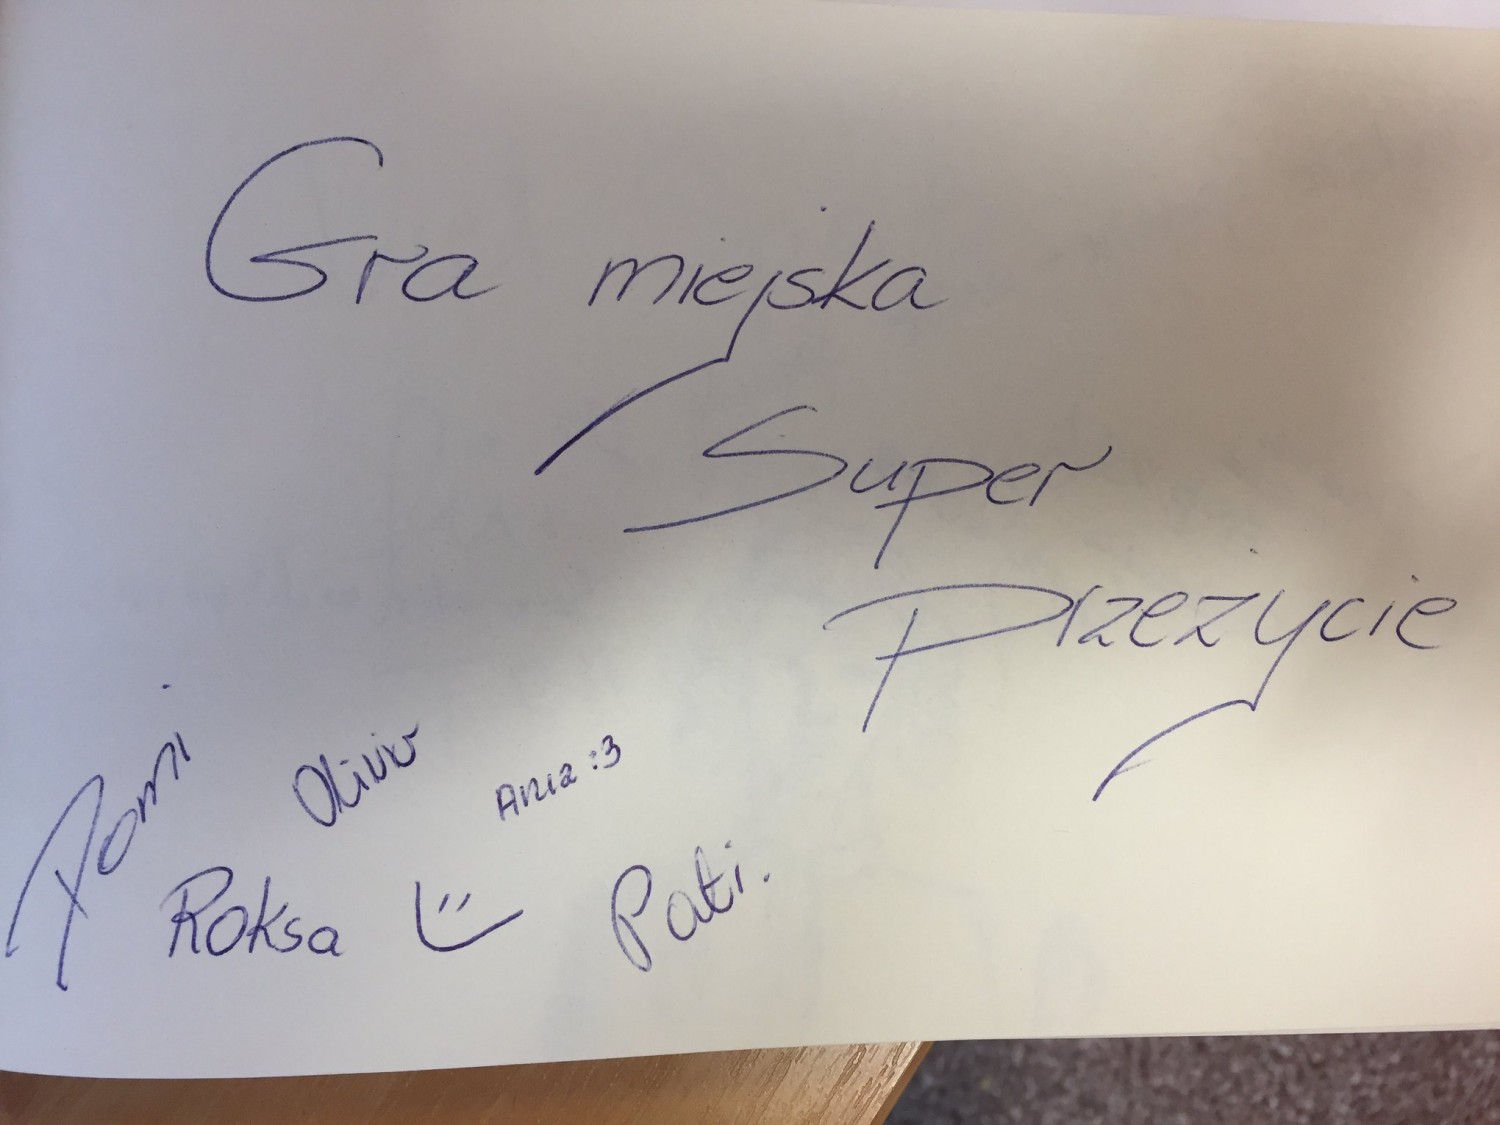 Gra miejska
Super
Przeżycie
Romi
Oliwu
Ania :3
Roksa
Pati.